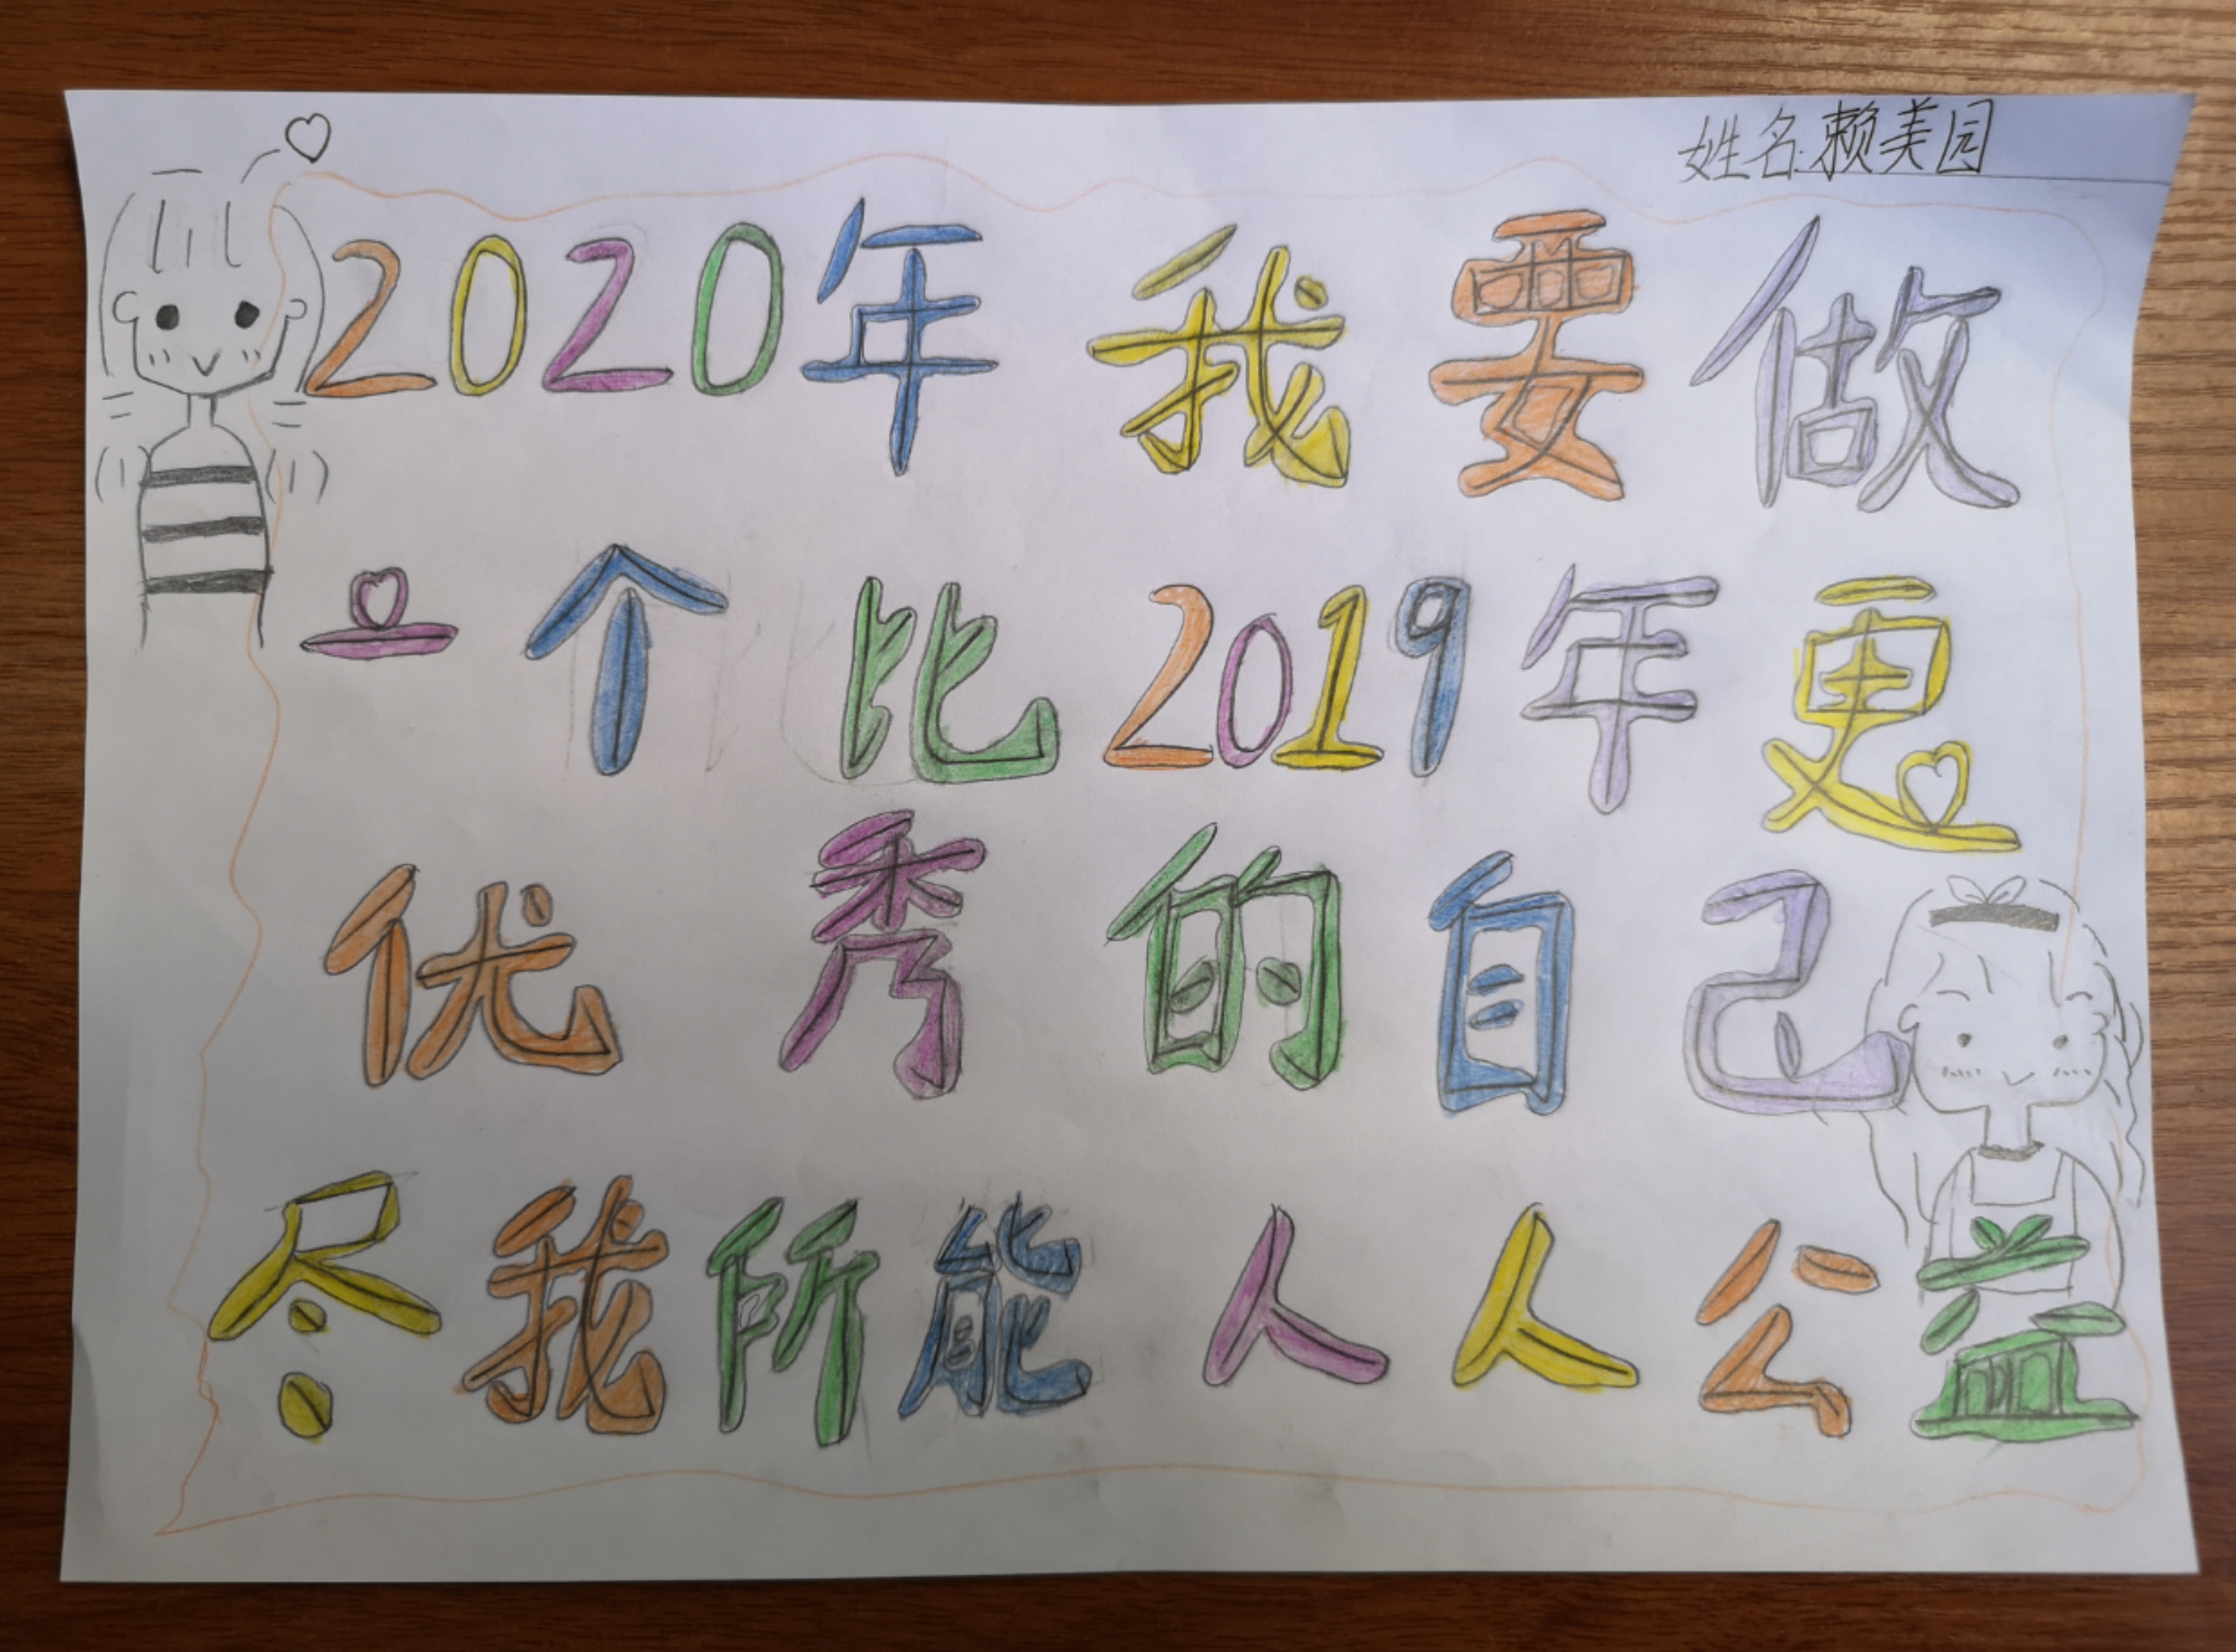 姓名:赖美园
2020年 我要做
一个比2019年更
优秀的自己
尽我所能人人公益